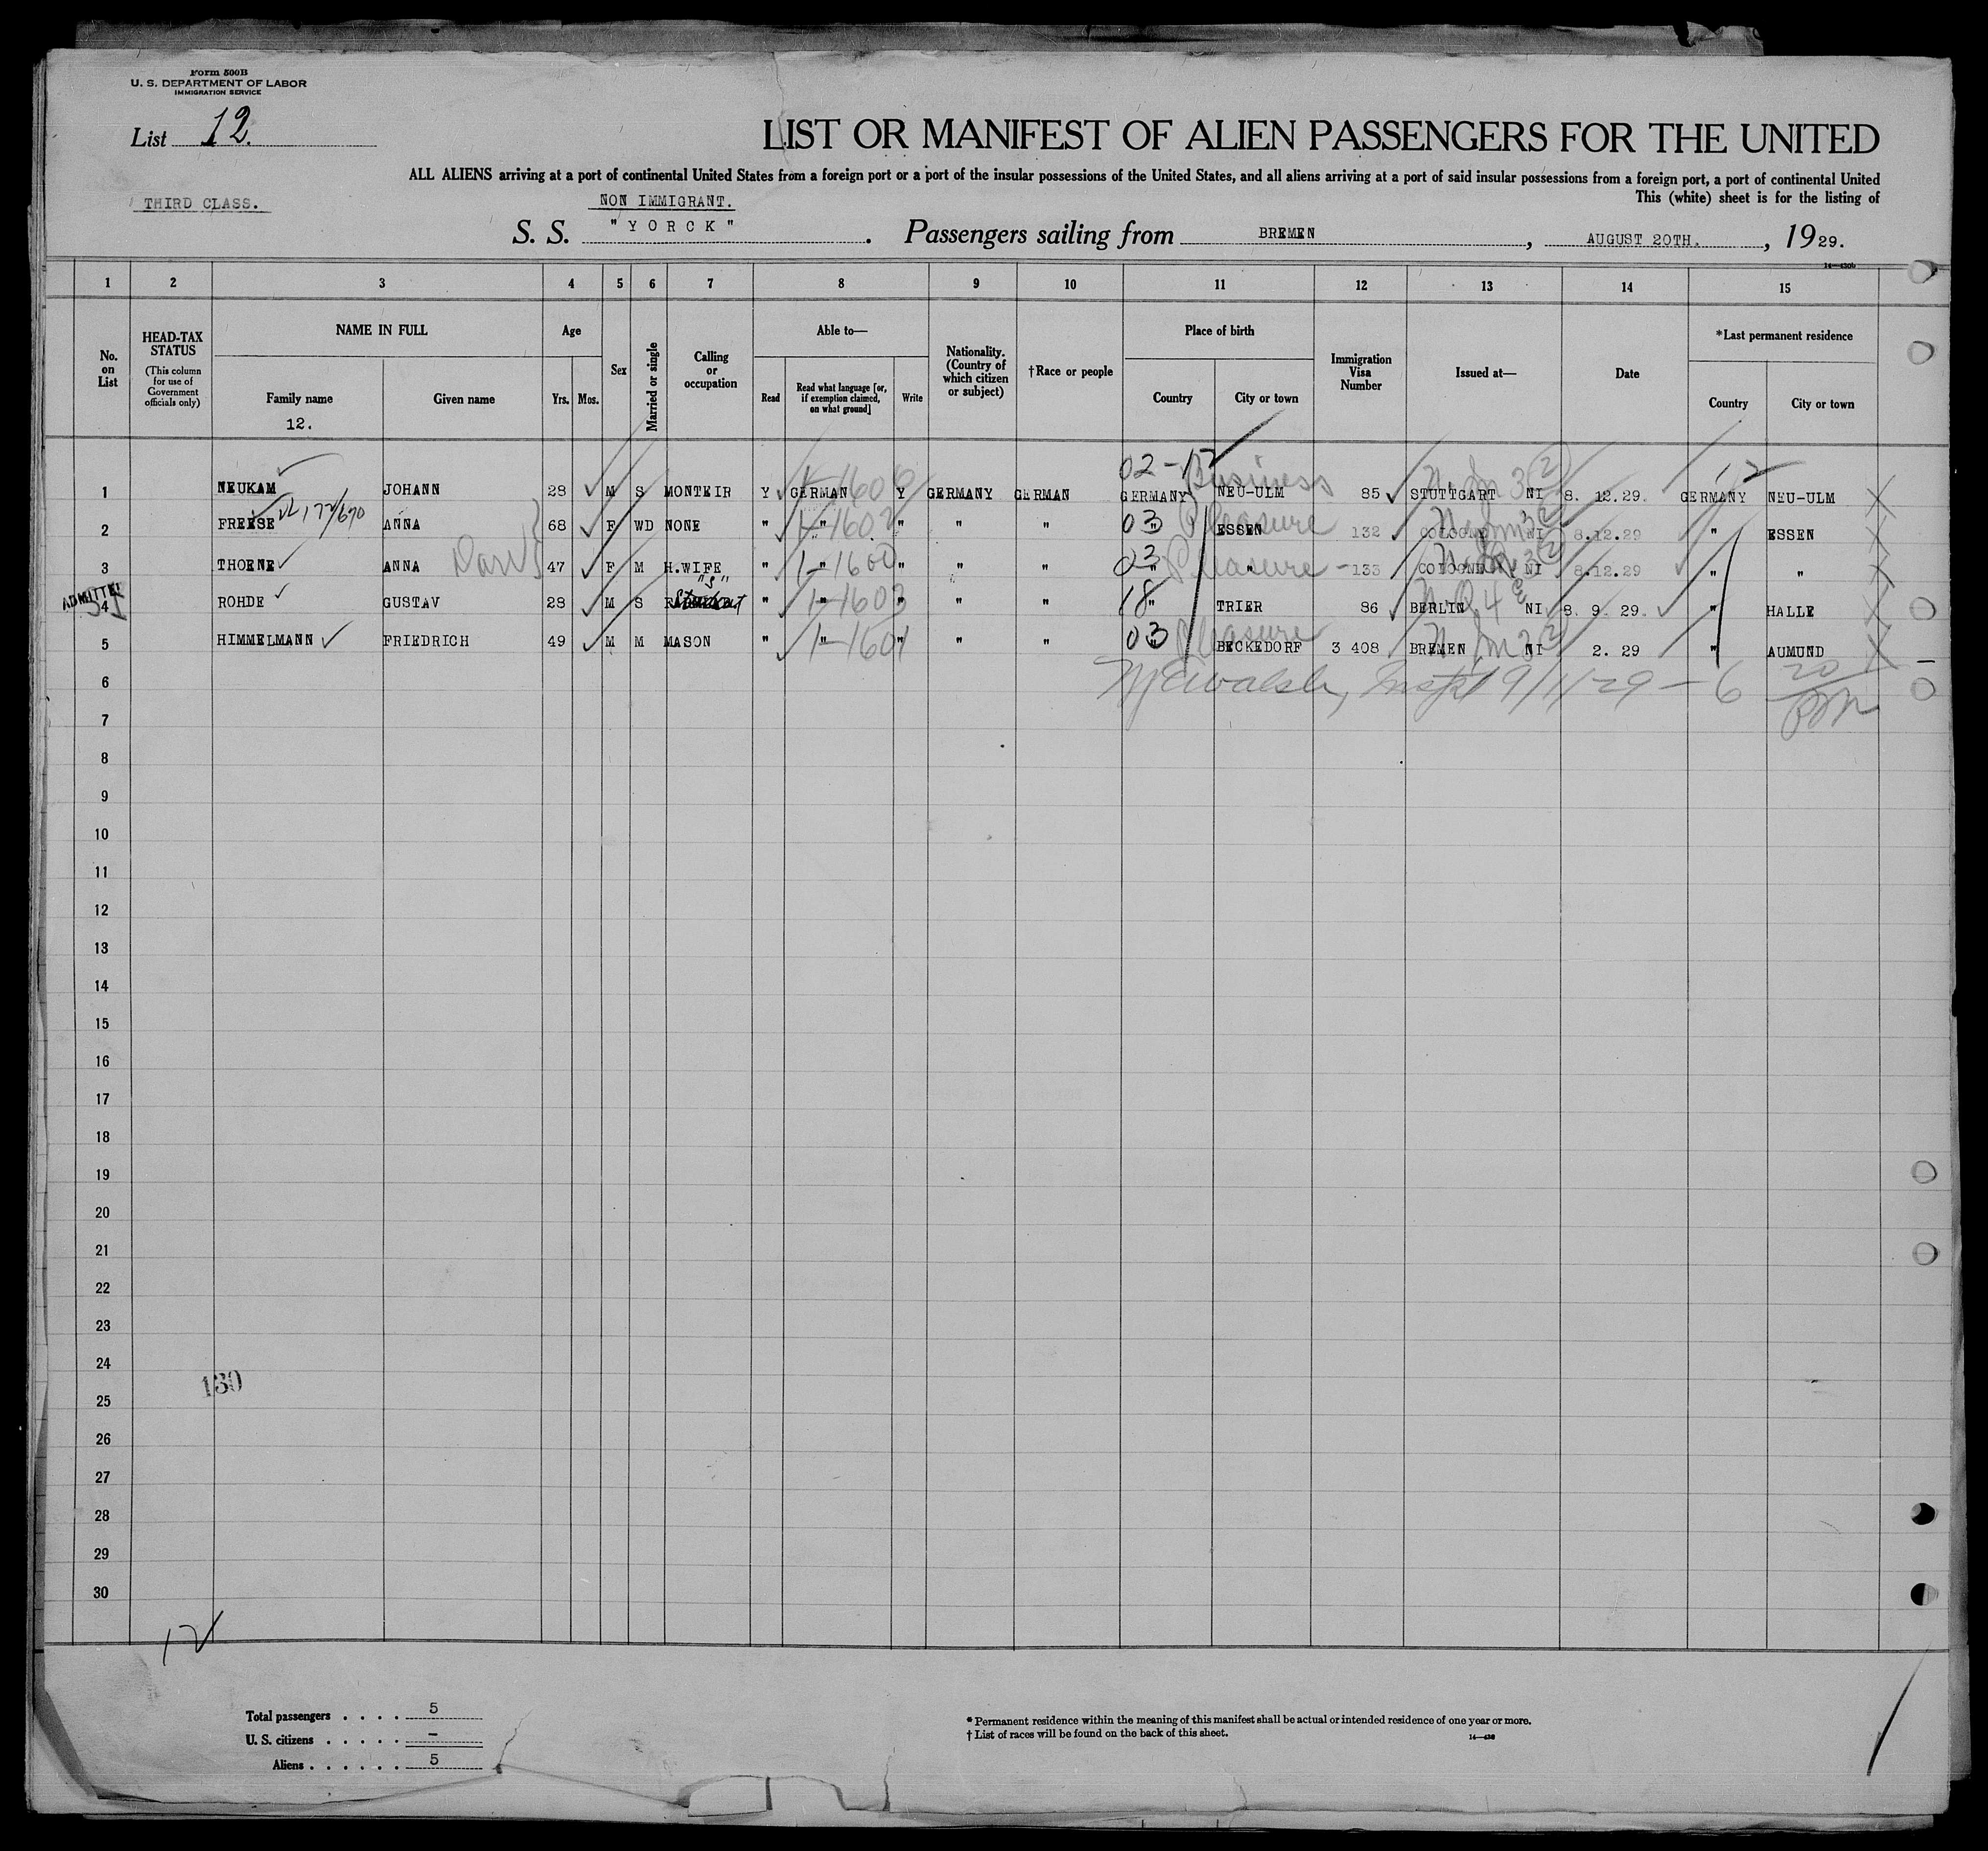 Form 500B
U. S. DEPARTMENT OF LABOR
IMMIGRATION SERVICE
List 12.
LIST OR MANIFEST OF ALIEN PASSENGERS FOR THE UNITED
ALL ALIENS arriving at a port of continental United States from a foreign port or a port of the insular possessions of the United States, and all aliens arriving at a port of said insular possessions from a foreign port, a port of continental United
This (white) sheet is for the listing of
THIRD CLASS.
NON IMMIGRANT.
S. S. " Y O R C K ". Passengers sailing from BREMEN, AUGUST 20TH., 1929.
14—430b
1 2 3 4 5 6 7 8 9 10 11 12 13 14 15
No. on List
HEAD-TAX STATUS
(This column for use of Government officials only)
NAME IN FULL
Family name
Given name
12.
Age
Yrs. Mos.
Sex
Married or single
Calling or occupation
Able to—
Read
Read what language [or, if exemption claimed, on what ground]
Write
Nationality. (Country of which citizen or subject)
†Race or people
Place of birth
Country
City or town
Immigration Visa Number
Issued at—
Date
*Last permanent residence
Country
City or town
02-12 Business 12
1 NEUKAM JOHANN 28 M S MONTEIR Y GERMAN 1-1606 Y GERMANY GERMAN GERMANY NEU-ULM 85 STUTTGART NI 8. 12.29. GERMANY NEU-ULM
172/670
2 FREESE ANNA 68 F WD NONE " " 1-1602 " " " 03 " Pleasure ESSEN 132 COLOGNE NI 8.12.29 " ESSEN
3 THORNE ANNA 47 F M H.WIFE " " 1-1600 " " " 03 " Pleasure " 133 COLOGNE NI 8.12.29 " "
ADMITTED
4 ROHDE GUSTAV 28 M S "S" Student " " 1-1603 " " " 18 " TRIER 86 BERLIN NI 8. 9. 29. " HALLE
5 HIMMELMANN FRIEDRICH 49 M M MASON " " 1-1601 " " " 03 " Pleasure BECKEDORF 3 408 BREMEN NI 2. 29 " AUMUND
6
7
8
9
10
11
12
13
14
15
16
17
18
19
20
21
22
23
24
130
25
26
27
28
29
30
12
Total passengers . . . . 5
U. S. citizens . . . . . –
Aliens . . . . . . 5
* Permanent residence within the meaning of this manifest shall be actual or intended residence of one year or more.
† List of races will be found on the back of this sheet.
14—430